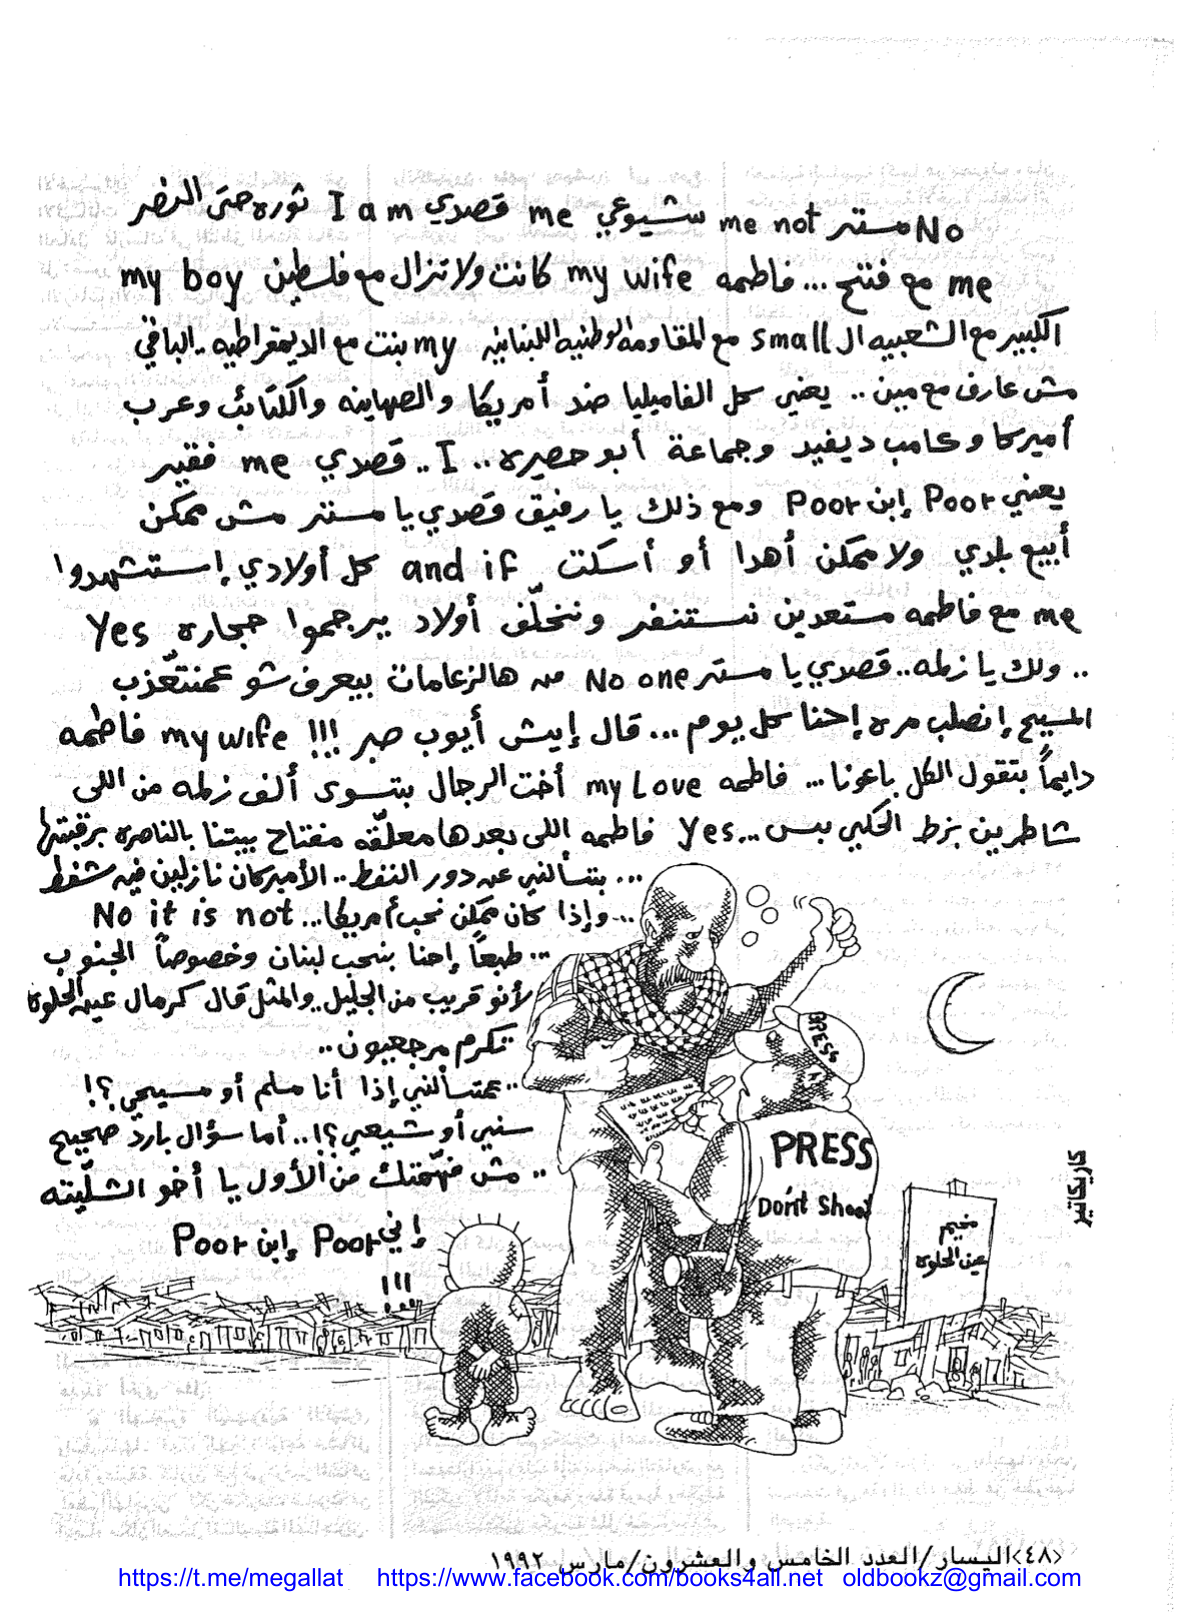 No مستر me not شيوعي me قصدي I am ثوره حتى النصر
me مع فتح... فاطمه my wife كانت ولا تزال مع فلسطين my boy
الكبير مع الشعبيه ال small مع المقاومه الوطنيه اللبنانيه my بنت مع الديمقراطيه.. الباقي
مش عارف مع مين.. يعني كل الفاميليا ضد أمريكا والصهاينه والكتائب وعرب
أميركا وكامب ديفيد وجماعة أبو حصيره.. I.. قصدي me فقير
يعني Poor إبن Poor ومع ذلك يا رفيق قصدي يا مستر مش ممكن
أبيع بلدي ولا ممكن أهدا أو أسكت and if كل أولادي إستشهدوا
me مع فاطمه مستعدين نستنفر ونخلّف أولاد يرجموا حجاره Yes
.. ولك يا زلمه.. قصدي يا مستر No one من هالزعامات بيعرف شو عمنتعّذب
المسيح إنصلب مره إحنا كل يوم... قال إيش أيوب صبر !!! my wife فاطمه
دايماً بتقول الكل باعونا... فاطمه my Love أخت الرجال بتسوى ألف زلمه من اللي
شاطرين بزط الحكي وبس... Yes فاطمه اللي بعدها معلّقه مفتاح بيتنا بالناصره برقبتها
... بتسألني عن دور النفط.. الأميركان نازلين فيه شفط
... وإذا كان ممكن نحب أمريكا... No it is not
... طبعاً إحنا بنحب لبنان وخصوصاً الجنوب
لأنو قريب من الجليل.. والمثل قال كرمال عين الحلوة
تكرم مرجعيون..
.. عمتسألني إذا أنا مسلم أو مسيحي؟!
سني أو شيعي؟!.. أما سؤال بارد صحيح
.. مش فهّمتك من الأول يا أخو الشليّته
إني Poor إبن Poor
!!!
PRESS
PRESS
Don't Shoot
مخيم
عين الحلوه
كاريكاتير
<٤٨>اليسار/العدد الخامس والعشرون/مارس ١٩٩٢
https://t.me/megallat https://www.facebook.com/books4all.net oldbookz@gmail.com